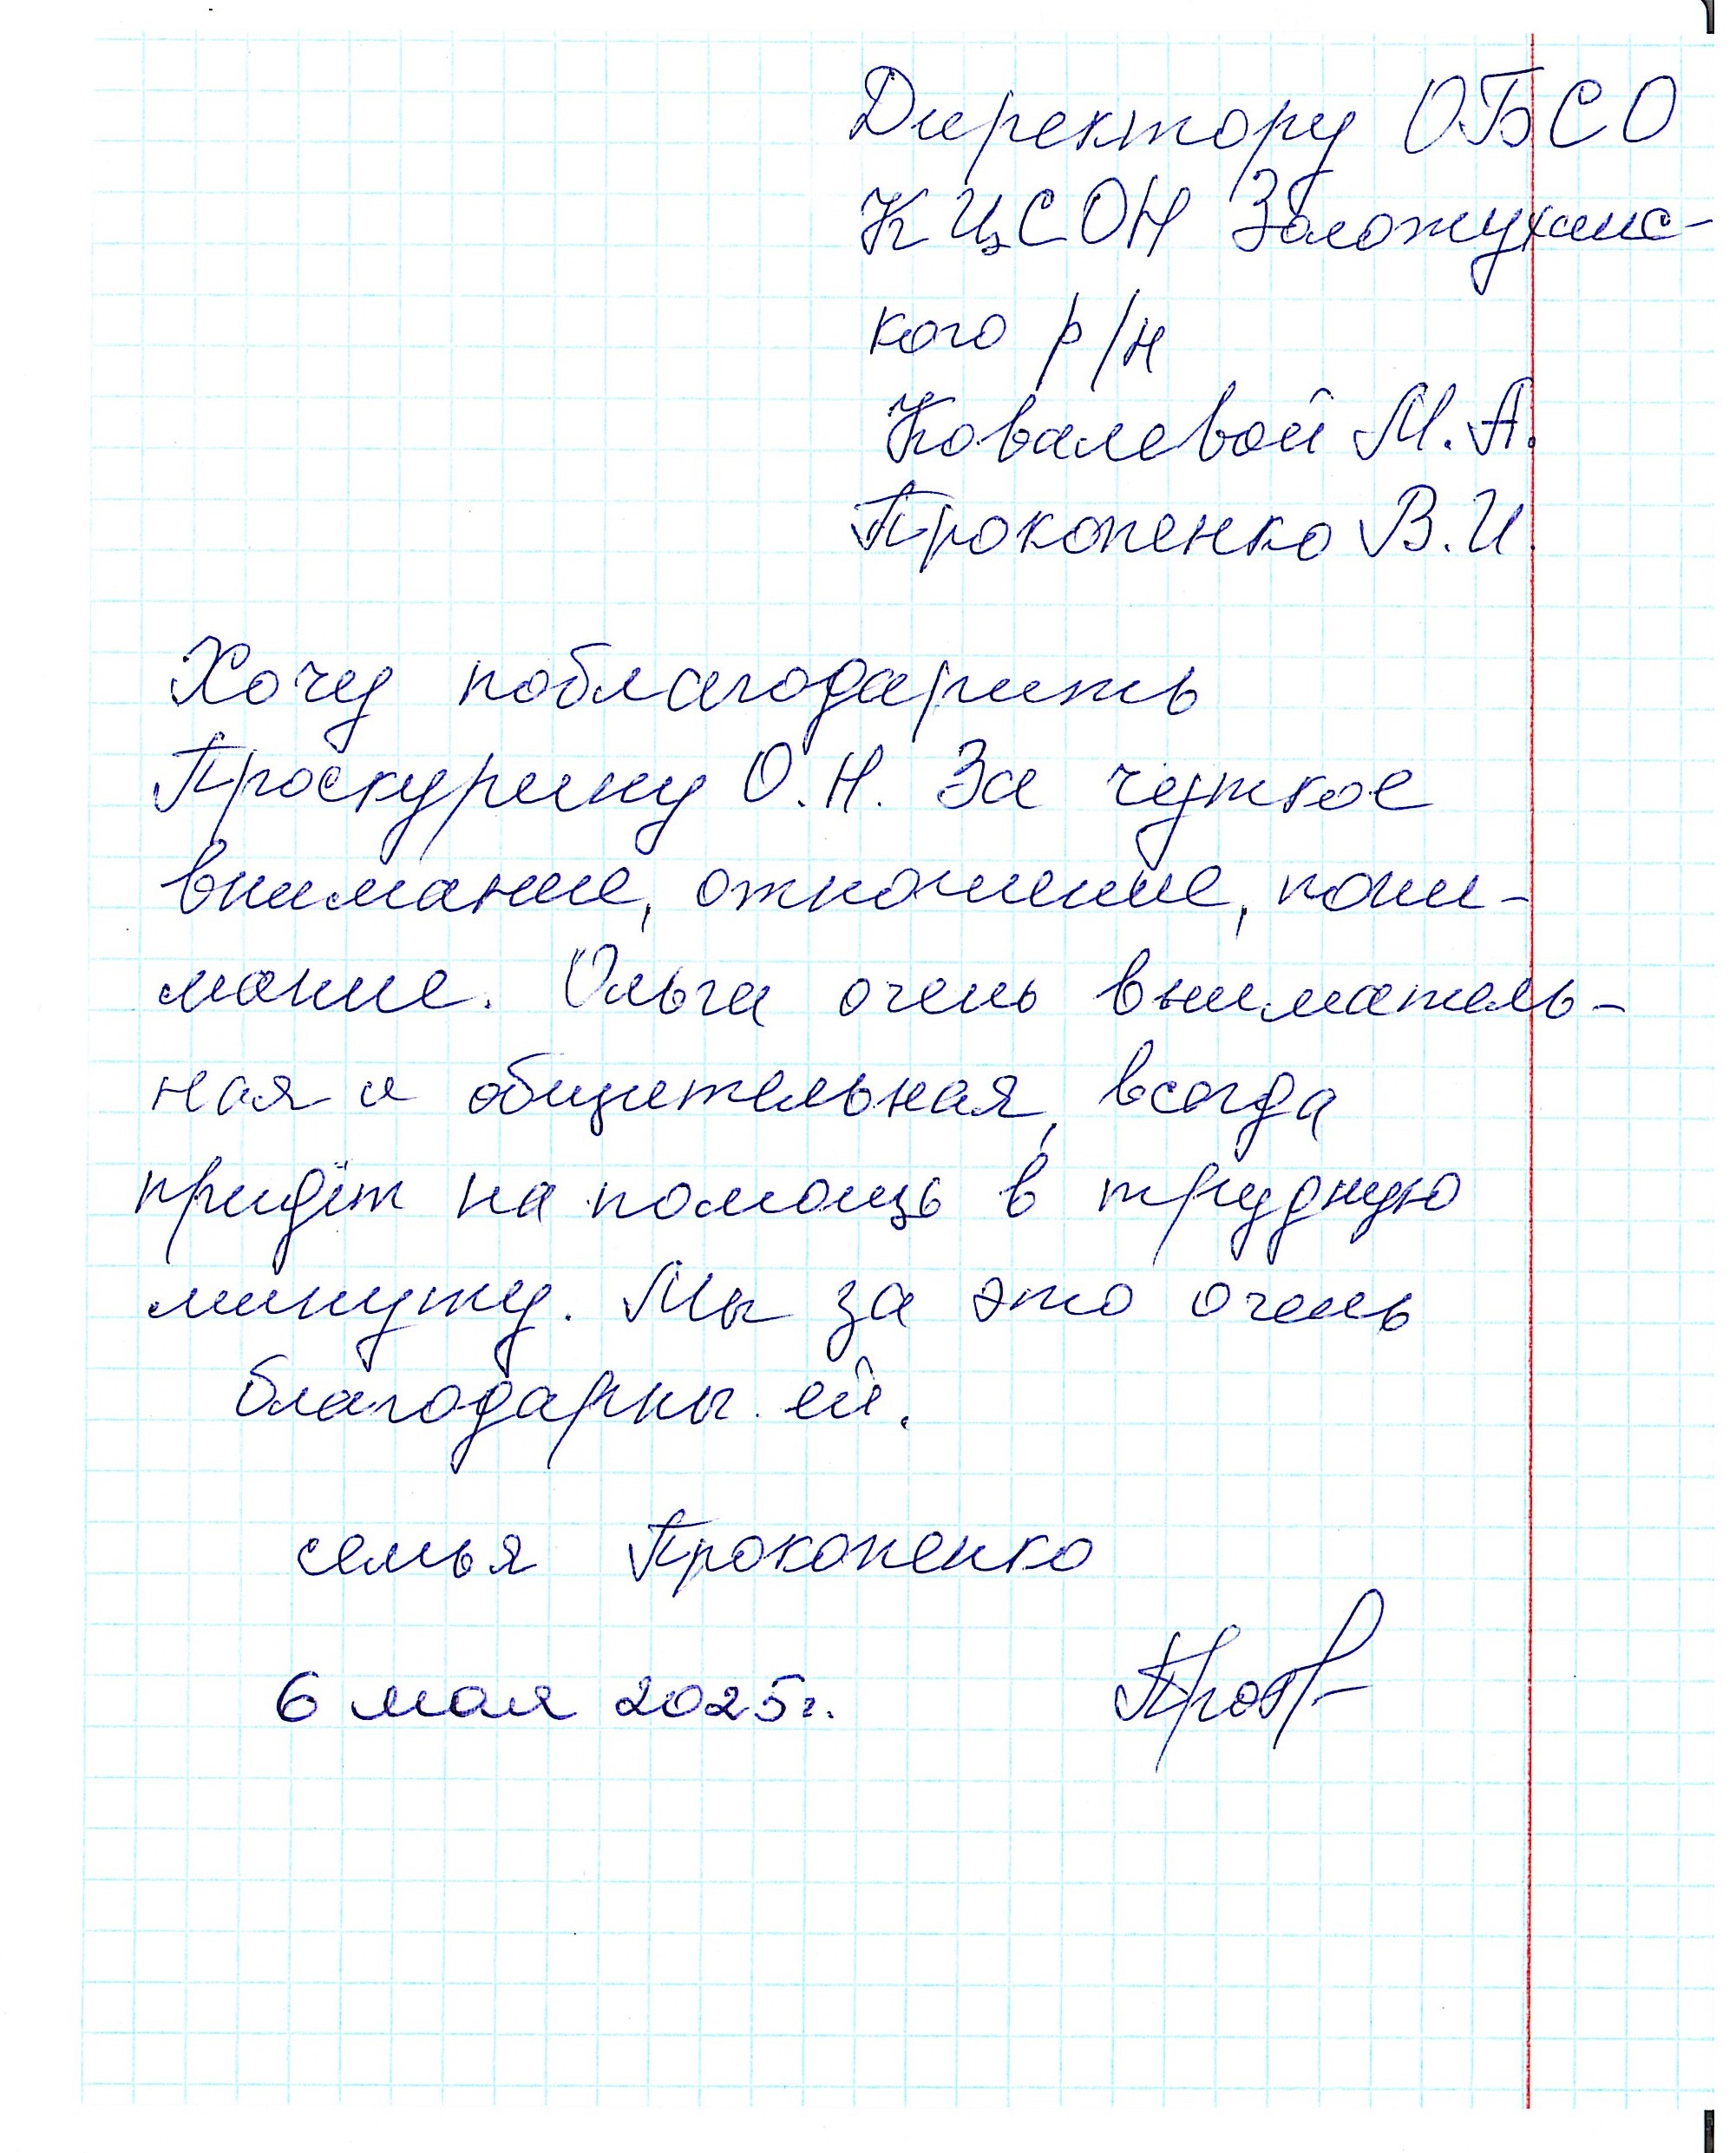 Директору ОБСО
КЦСОН Золотухинс-
кого р/н
Ковалевой М.А.
Прокопенко В.И.
Хочу поблагодарить
Проскурину О.Н. За чуткое
внимание, отношение, пони-
мание. Ольга очень вниматель-
ная и общительная, всегда
придёт на помощь в трудную
минуту. Мы за это очень
благодарны ей.
семья Прокопенко
6 мая 2025г.